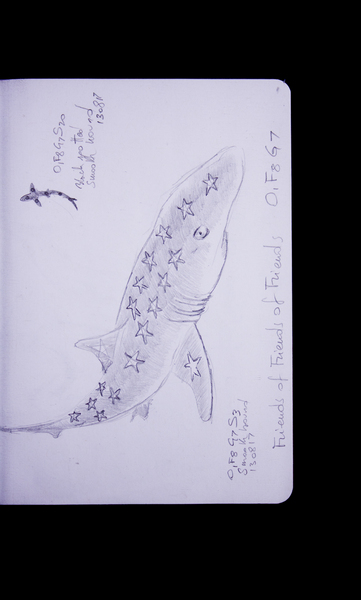 Friends of Friends of Friends O1F8G7
O1F8G7S20
Black spotted
Smooth hound
130817
O1F8G7S3
Smooth hound
130817